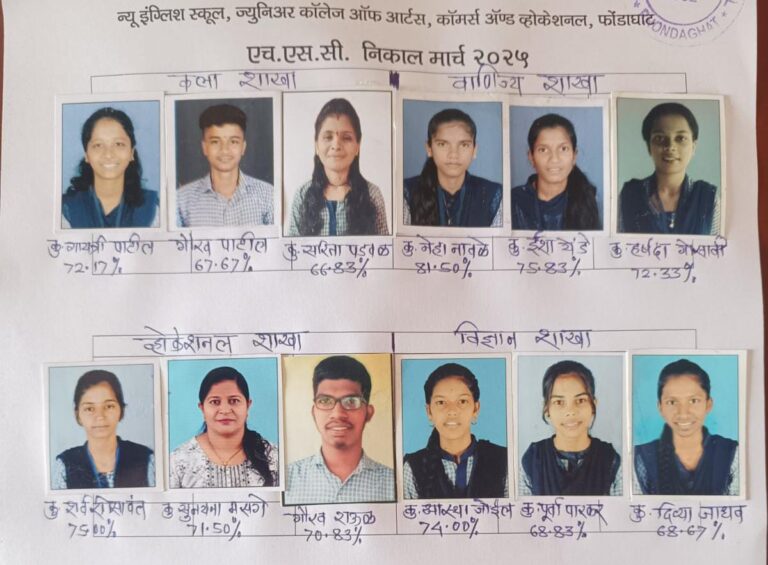 न्यू इंग्लिश स्कूल, ज्युनिअर कॉलेज ऑफ आर्टस, कॉमर्स ॲण्ड व्होकेशनल, फोंडाघाट
ONDAGHAT
एच.एस.सी. निकाल मार्च २०२५
कला शाखा वाणिज्य शाखा
कु. गायत्री पाटील गौरव पाटील कु. सरिता पडवळ कु. नेहा नावळे कु. ईशा शेंडे कु. हर्षदा गोसावी
72.17% 67.67% 66.83% 81.50% 75.83% 72.33%
व्होकेशनल शाखा विज्ञान शाखा
कु. सर्वरी सावंत कु. सुनयना मसगे गौरव राऊळ कु. आस्था जोईल कु. पूर्वा पारकर कु. दिव्या जाधव
75.00% 71.50% 70.83% 74.00% 68.83% 68.67%